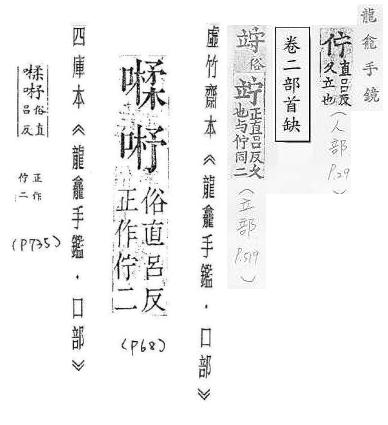 龍龕手鏡
佇直呂反
久立也
(人部 P.29)
卷二部首缺
竚俗竚正直呂反久
也与佇同二
(立部 P.519)
虛竹齋本《龍龕手鑑·口部》
俗直呂反
正作佇二
(P68)
四庫本《龍龕手鑑·口部》
俗直
呂反
正作
佇二
(P735)